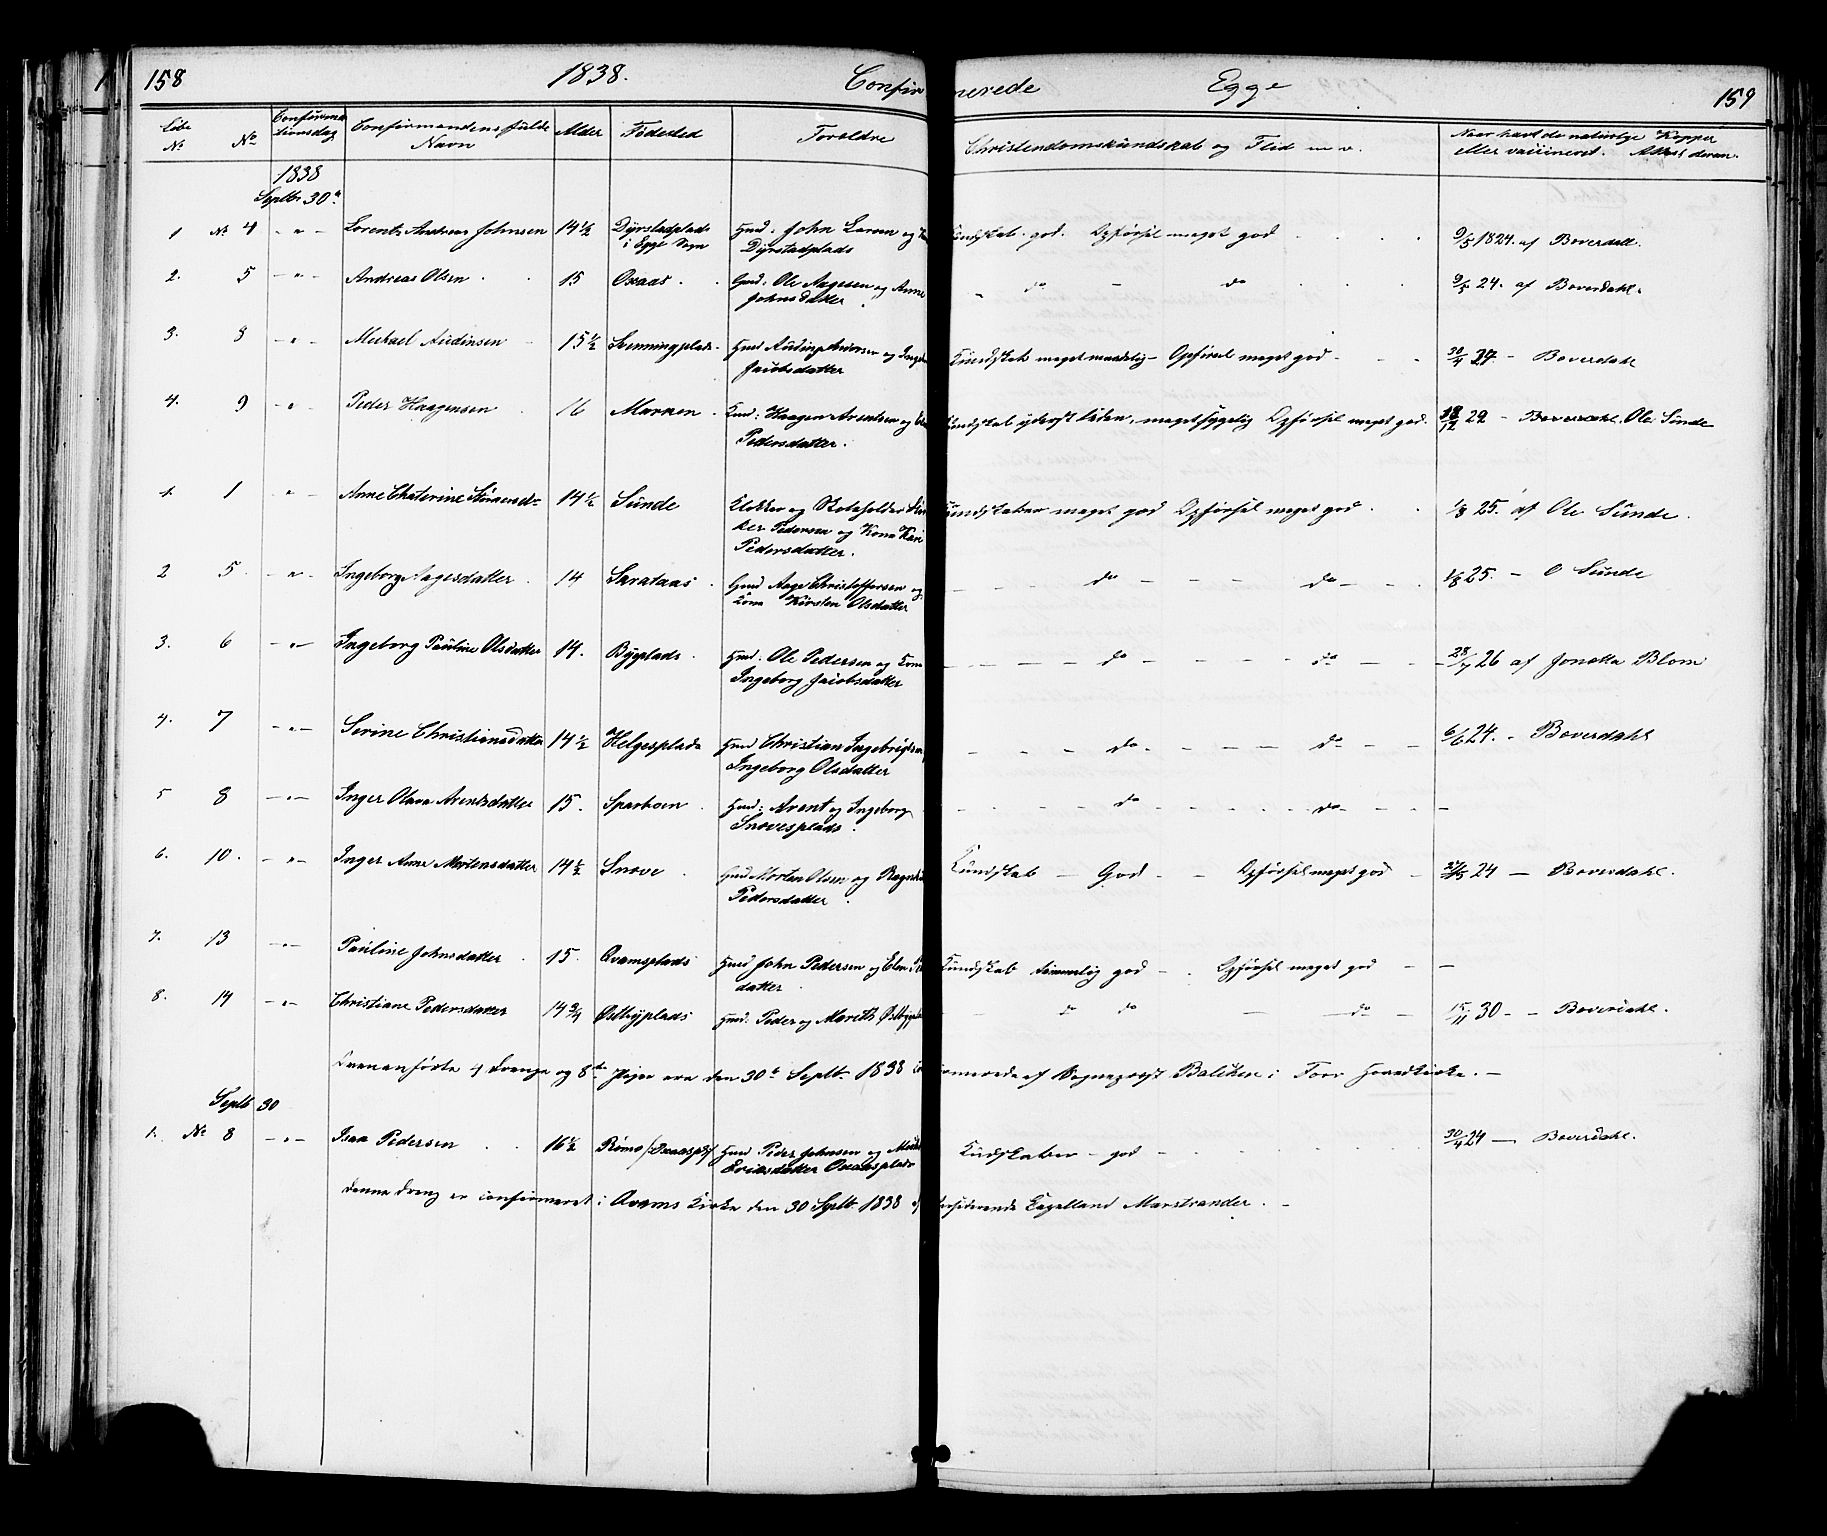 158 1838. Confir merede Egge 159
Løbe No. No. Confirmationsdag Confirmandens fulde Navn Alder Fødested Forældre Christendomskundskab og Flid m. v. Naar havt de naturlige Kopper eller vaccineret. Attest derom.
1838
Septbr 30te
1 No. 4 - " - Lorents Andreas Johnsen 14 1/2 Dyrstadplads Gmd. John Larsen og Kundskab god. Opførsel meget god 9/5 1824. af Boverdahl.
i Egge Sogn Dyrstadplads
2. 5 - " - Andreas Olsen 15 Oxaas Gmd. Ole Aagesen og Anne " do - do 9/5 24. af Boverdahl.
Johnsdatter
3. 8 - " - Michael Audinsen 15 1/2 Svenningplads Gmd Audin Andersen og Kundskab meget maadelig - Opførsel meget god - 30/4 24 - Boverdahl
Jacobsdatter
4. 9 - " - Peder Haagensen 16 Marken Gmd: Haagen Arentsen og Kundskab yderst liden, meget sygelig Opførsel meget god. 18/12 29 - Boverdahl. Ole Sünde
Pedersdatter.
1. 1 " Anne Chaterine 14 1/2 Sünde Klokker og Kundskaber meget god Opførsel meget god 1/8 25. af Ole Sünde.
Pedersen og Kone Kari
Pedersdatter.
2 5. - " - Ingeborg Aagesdatter 14 Sarataas Gmd Aage Christoffersen og - - do - - do - 1/8 25. - O Sünde
Kone Kirsten Olsdatter
3. 6 - " - Ingeborg Pauline Olsdatter 14. Byeplads Gmd. Ole Pedersen og Kone - - do - - do - 28/7 26 af Jonetta Blom
Ingeborg Jacobsdatter
4. 7 - " - Serine Christiansdatter 14 1/2 Helgesplads Gmd Christian Ingebrigtsen - - do - - do - 6/6 24. - Boverdahl
Ingeborg Olsdatter
5 8 - " - Inger Olava Arentsdatter 15. Sparboen Gmd: Arent og Ingeborg - - do - - do - -
Snovesplads.
6. 10. - " - Inger Anne Mortensdatter 14 1/2 Snove Gmd Morten Olsen og Kundskab - God - Opførsel meget god - 24 - Boverdahl.
Pedersdatter
7. 13 - " - Pauline Johnsdatter 15. Qvamsplads Gmd John Pedersen og Kundskab temmelig god - Opførsel meget god - -
datter
8. 14 - " - Christiane Pedersdatter 14 3/4 Østbyplads Gmd. Peder og Mareth - do do - do - 15/11 30 - - Boverdahl.
Ovenanførte 4 Drenge og 8te Piger ere den 30te Septbr 1838 af Sogneprest i Foor Hovedkirke. -
Septb 30
1. No. 8 - " - Isaa Pedersen 16 1/2 Gmd Peder Johnsen og Kundskaber - god - 30/4 24 - Boverdahl.
Ericsdatter Oxaasplads
Denne Dreng er confirmeret i Qvams Kirke den 30 Septbr. 1838 af residerende Capellan Marstrander. -